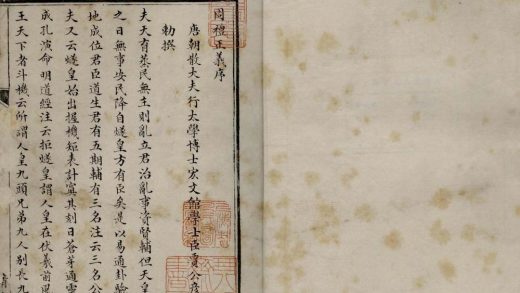 周禮正義序
唐朝散大夫行太學博士宏文館學士臣賈公彥
勅撰
夫天育蒸民無主則亂立君治亂事資賢輔但天皇
之日無事安民降自燧皇方有臣矣是以易通卦驗
地成位君臣道生君有五期輔有三名注云三公
夫又云燧皇始出握機矩表計寘其刻曰蒼牙通靈
成孔演命明道經注云拒燧皇謂人皇在伏羲前風
王天下者斗機云所謂人皇九頭兄弟九人別長九